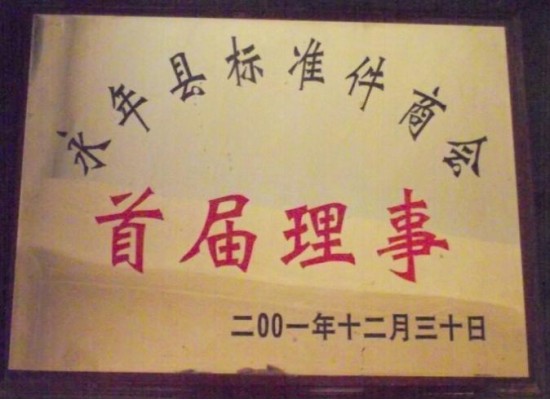 永年县标准件商会
首届理事
二00一年十二月三十日